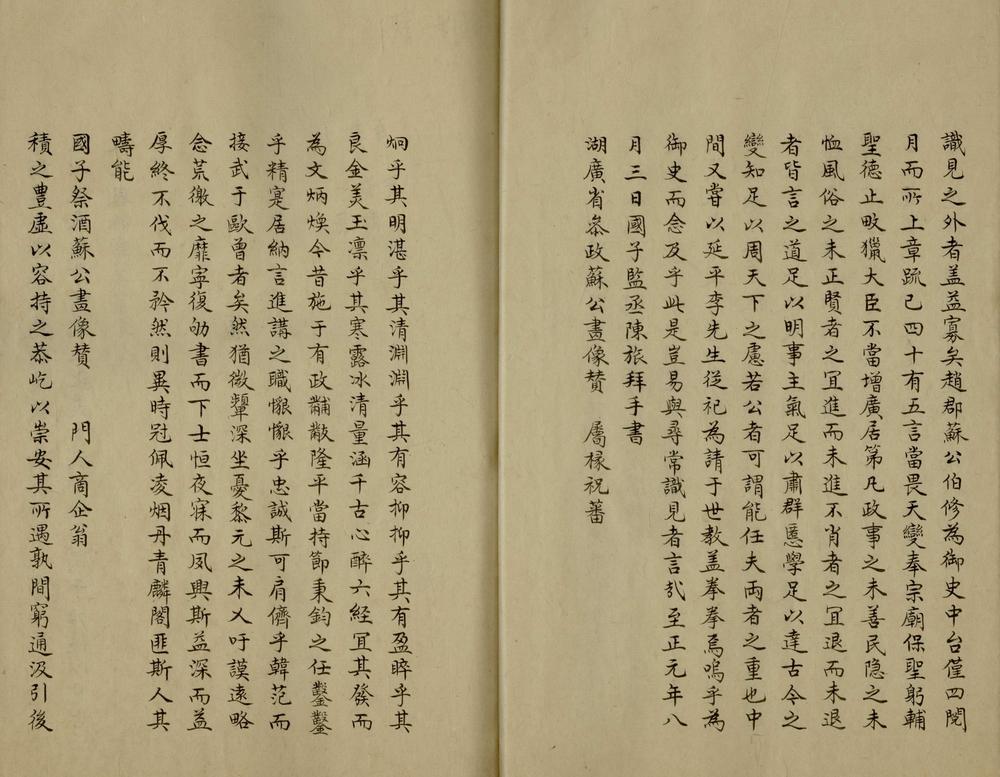 識見之外者盖益寡矣趙郡蘇公伯修為御史中台僅四閱
月而所上章䟽已四十有五言當畏天變奉宗廟保聖躬輔
聖德止畋獵大臣不當增廣居第凡政事之未善民隐之未
恤風俗之未正賢者之冝進而未進不肖者之冝退而未退
者皆言之道足以明事主氣足以肅群慝學足以達古今之
變知足以周天下之慮若公者可謂能任夫兩者之重也中
間又甞以延平李先生従祀為請于世教盖拳拳焉嗚乎為
御史而念及乎此是豈易與尋常識見者言㢤至正元年八
月三日國子監丞陳旅拜手書
湖廣省叅政蘇公畫像賛 屬椽祝蕃
炯乎其明湛乎其清淵淵乎其有容抑抑乎其有盈睟乎其
良金美玉凛乎其寒露冰清量涵千古心醉六経冝其發而
為文炳煥今昔施于有政黼黻隆平當持節秉鈞之任鑿鑿
乎精寔居納言進講之職懇懇乎忠誠斯可肩儕乎韓范而
接武于歐曾者矣然猶微顰深坐憂黎元之未乂吁謨逺略
念荒徼之靡寧復劬書而下士恒夜寐而夙興斯益深而益
厚終不伐而不矜然則異時冠佩凌烟丹青麟閣匪斯人其
疇能
國子祭酒蘇公畫像賛 門人商企翁
積之豊虛以容持之恭屹以崇安其所遇孰間窮通汲引後